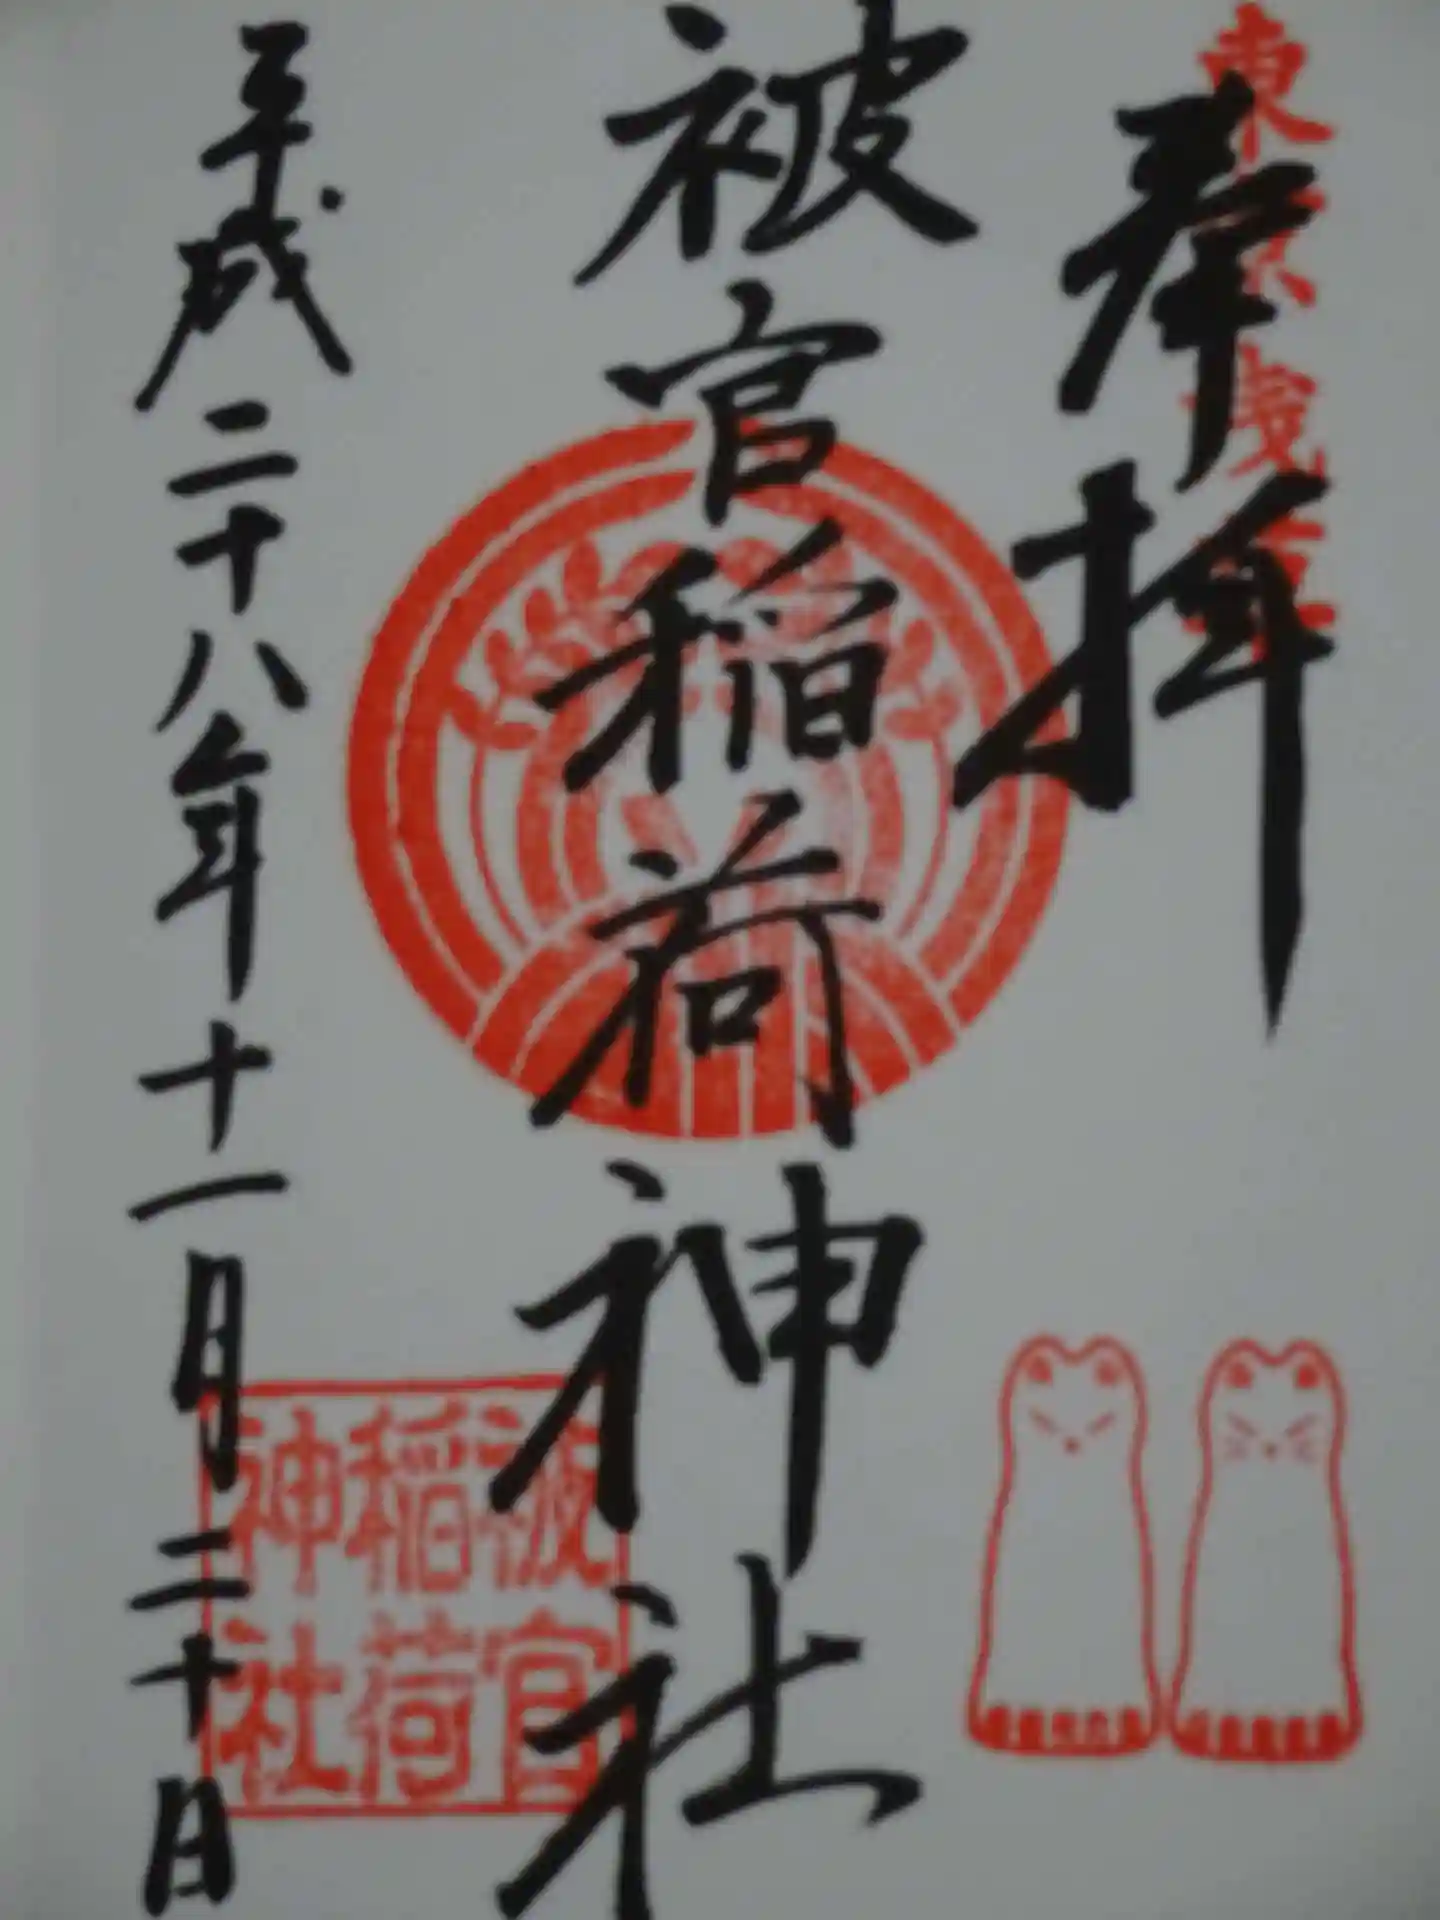 東京浅草
奉拝
被官稲荷神社
被官
稲荷
神社
平成二十八年十一月二十日